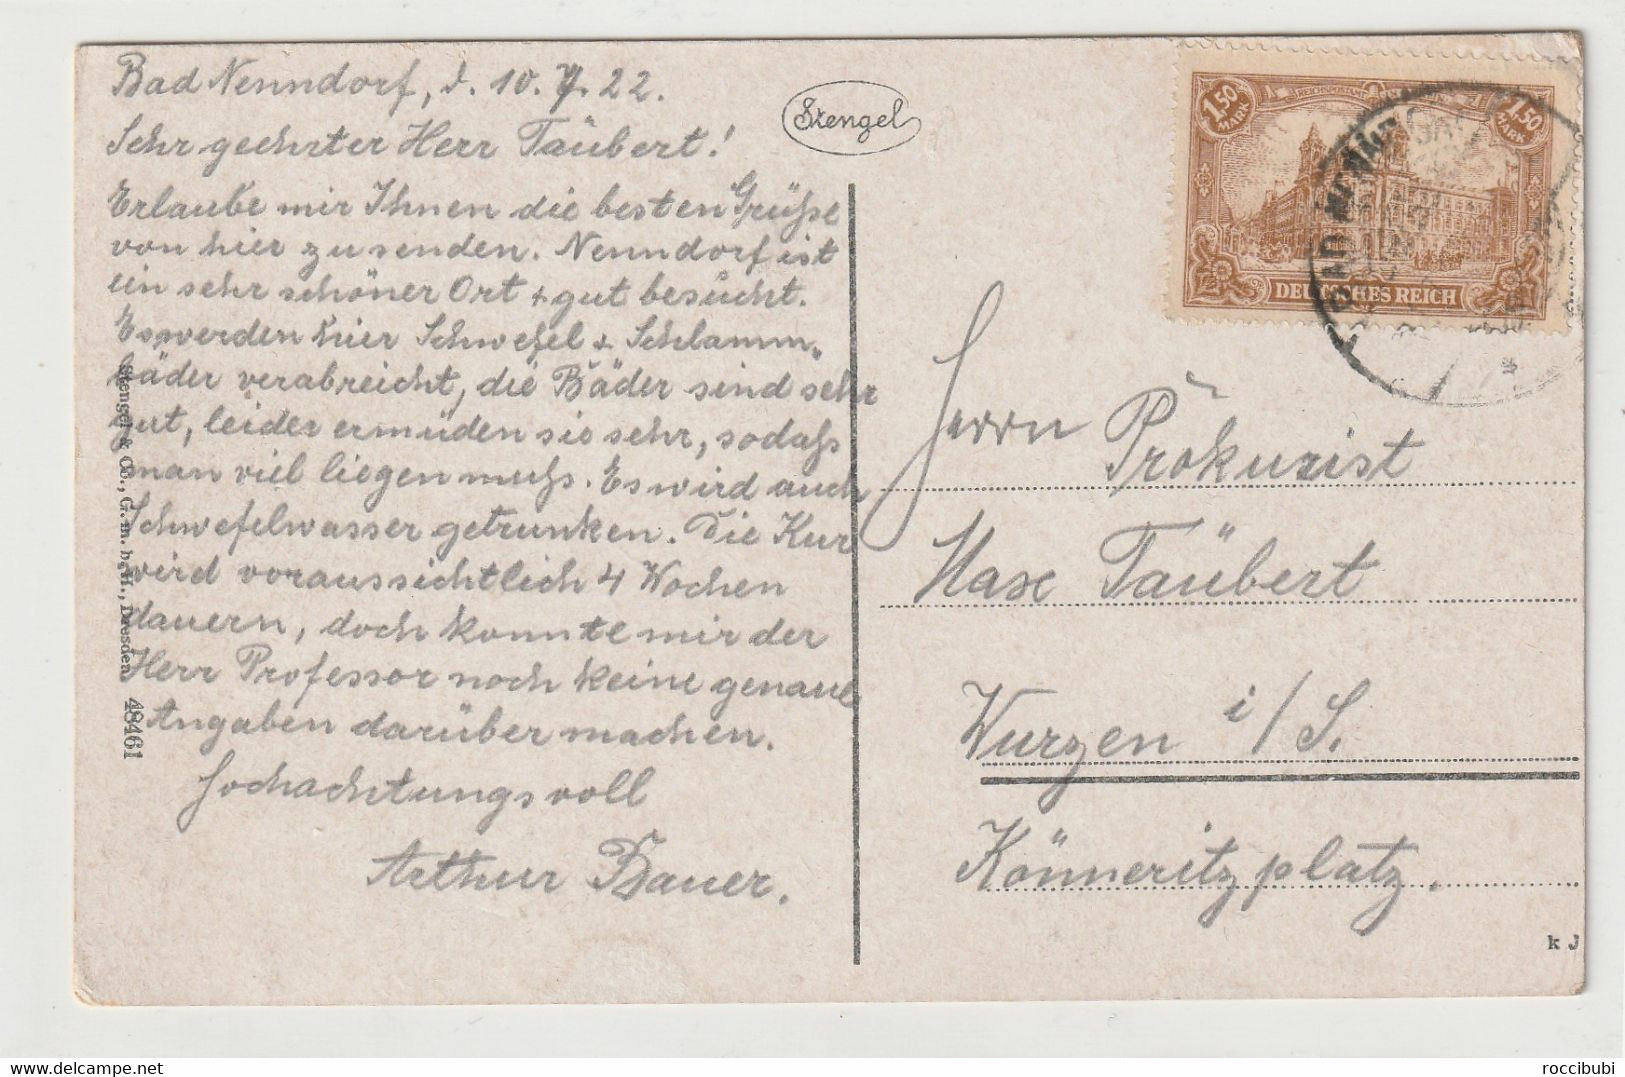 Bad Nenndorf, d. 10. 7. 22.
Sehr geehrter Herr Täubert!
Erlaube mir Ihnen die besten Grüße
von hier zu senden. Nenndorf ist
ein sehr schöner Ort + gut besucht.
Es werden hier Schwefel + Schlamm-
bäder verabreicht, die Bäder sind sehr
gut, leider ermüden sie sehr, sodaß
man viel liegen muß. Es wird auch
Schwefelwasser getrunken. Die Kur
wird voraussichtlich 4 Wochen
dauern, doch konnte mir der
Herr Professor noch keine genaue
Angaben darüber machen.
Hochachtungsvoll
Arthur Bauer.
Stengel & Co., G. m. b. H., Dresden 48461
Stengel
1,50 MARK
REICHSPOSTAMT
1,50 MARK
DEUTSCHES REICH
BAD NENN
Herrn Prokurist
Max Täubert
Wurzen i/S.
Könneritzplatz.
k J
roccibubi